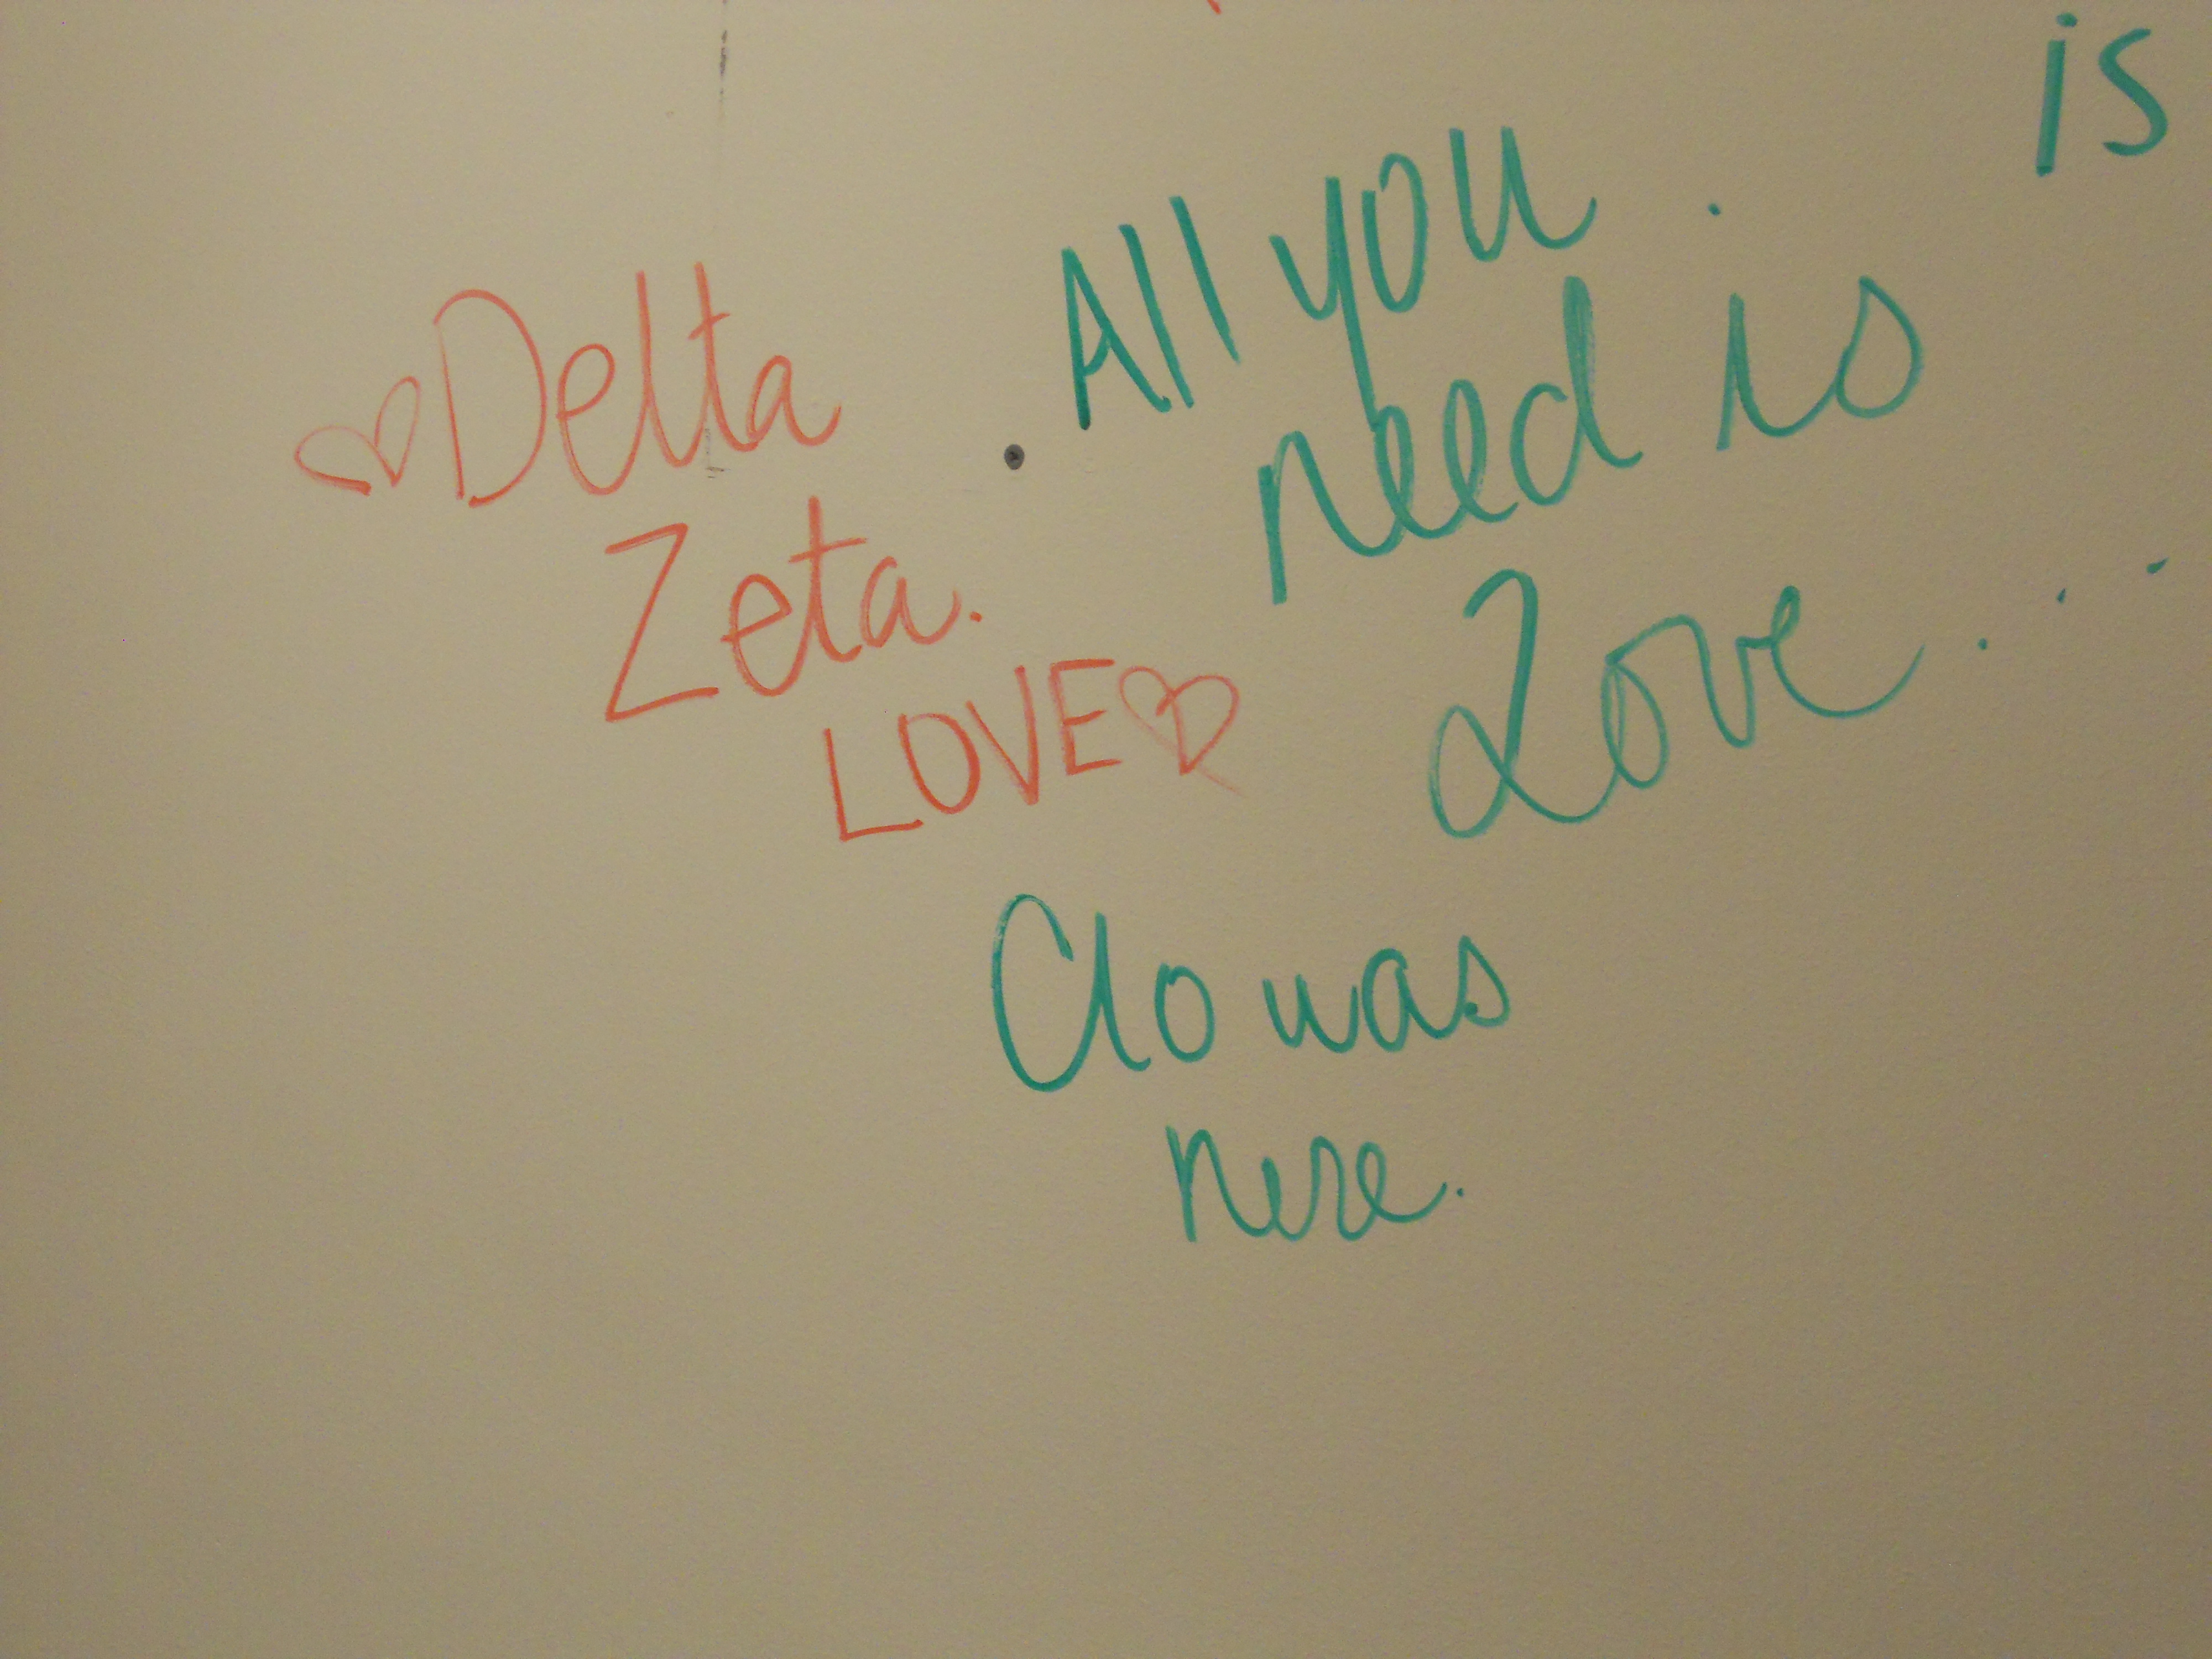 is
♡Delta
Zeta.
LOVE♡
All you
need is
Love...
Clo was
here.